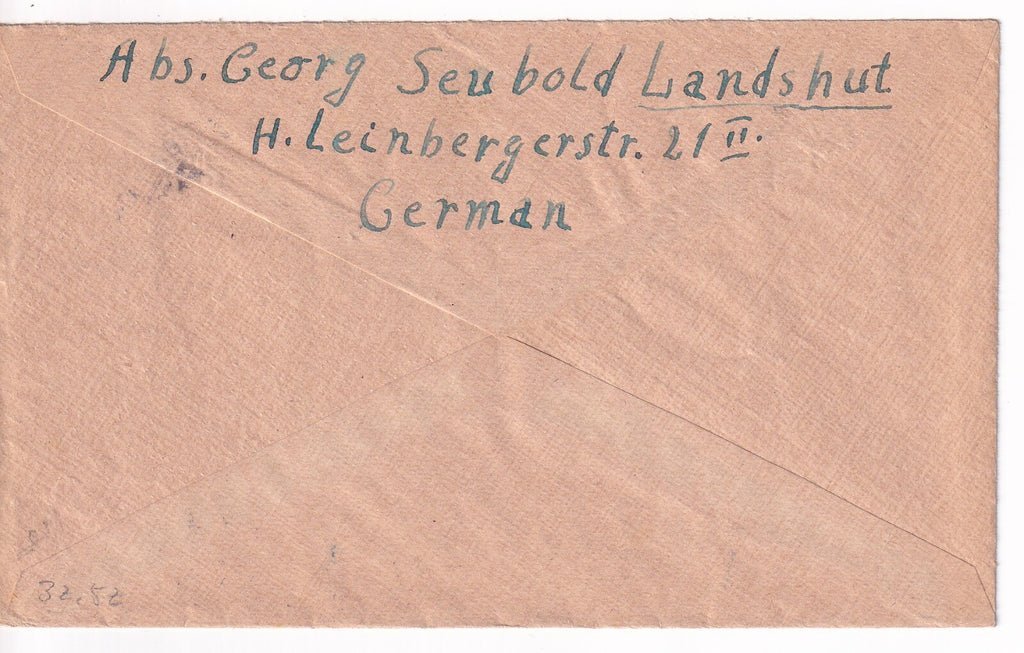 Abs. Georg Seubold Landshut
H. Leinbergerstr. 21 II.
German
32,52